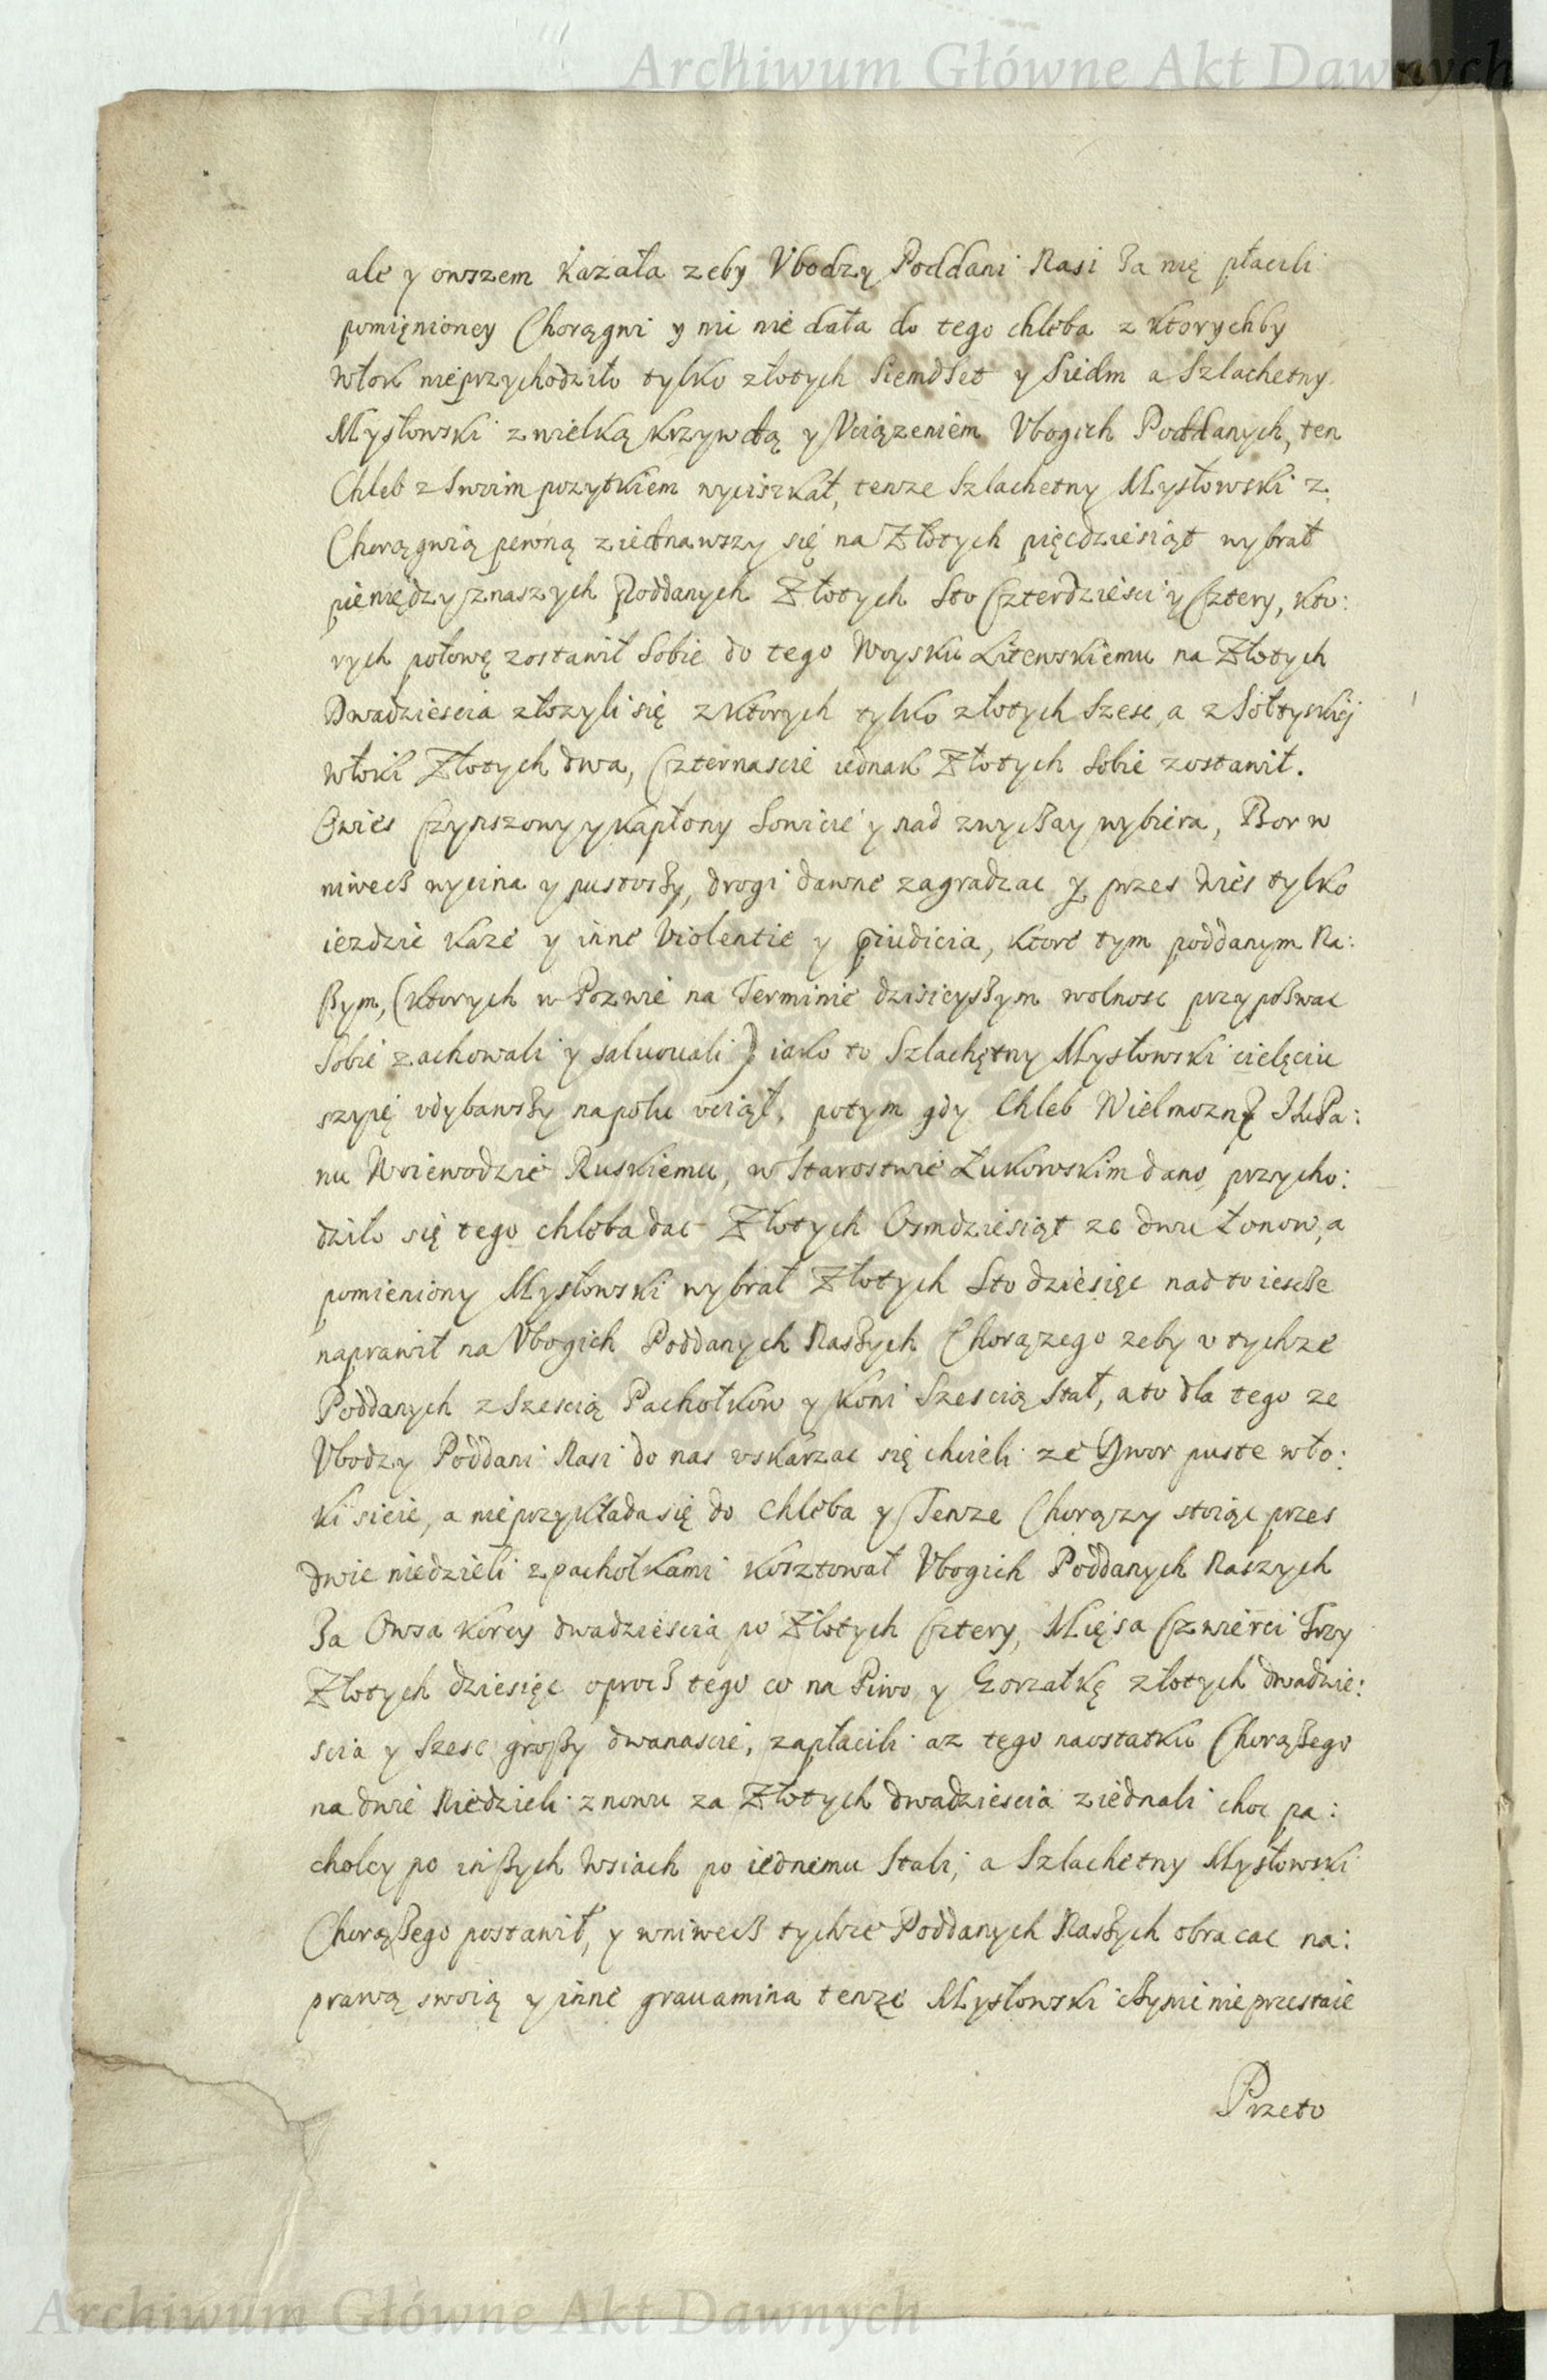 Archiwum Główne Akt Dawnych
ale y owszem kazała zeby Vbodzy Poddani Nasi za nię płacili
pomięnioney Chorągwi y nic nie dała do tego chleba z ktorychby
włok nieprzychodziło tylko złotych Siemdset y Siedm a Szlachetny
Mysłowski z wielką krzywdą y Vciązeniem Vbogich Poddanych, ten
Chleb z Swoim pozytkiem wyciszkał, tenze Szlachetny Mysłowski z
Chorągwią pewną ziednawszy się na Złotych pięcdziesiąt wybrał
pieniędzy z naszych Poddanych Złotych Sto Czterdziesci y Cztery, kto:
rych połowę zostawił Sobie do tego Woysku Litewskiemu na Złotych
Dwadziescia złozyli się z ktorych tylko złotych Szesc, a z Sołtyskiej
włoki Złotych dwa, Czternascie iednak Złotych Sobie zostawił.
Owies Czynszowy y kapłony Sowicie y nad zwyczay wybiera, Bor w
niwecz wycina y pustoszy, drogi dawne zagradzac y przes wies tylko
iezdzic kaze y inne Violentie y piudicia, ktore tym poddanym Na:
szym, (ktorych w Pozwie na Terminie dzisieyszym wolnosc przypozwac
Sobie zachowali y saluouali) iako to Szlachętny Mysłowski cielęciu
szyię vdybawszy na polu vciął, potym gdy Chleb Wielmoznę JMPa:
nu Woiewodzie Ruskiemu, w Starostwie Łukowskim dano, przycho:
dziło się tego chleba dac Złotych Osmdziesiąt ze dwu Łonow, a
pomieniony Mysłowski wybrał Złotych Sto dziesięc nad to iescze
naprawił na Vbogich Poddanych Naszych Chorązego zeby v tychze
Poddanych z Szescią Pachołkow y koni Szescią Stał, a to dla tego ze
Vbodzy Poddani Nasi do nas vskarzac się chcieli ze Dwor puste wło:
ki sieie, a nie przykłada się do Chleba y Tenze Chorązy stoiąc przes
dwie niedzieli z pachołkami kosztował Vbogich Poddanych Naszych
Za Owsa korcy dwadziescia po Złotych Cztery, Mięsa Czwierci Trzy
Złotych dziesięc oprocz tego co na Piwo y Gorzałkę złotych dwadzie:
scia y Szesc groszy dwanascie, zapłacili az tego naostatku Chorązego
na dwie Niedzieli znowu za Złotych dwadziescia ziednali choc pa:
cholcy po inszych Wsiach po iednemu Stali, a Szlachetny Mysłowski
Chorązego postawił, y wniwecz tychze Poddanych Naszych obracac na:
prawą swoią y inne grauamina tenze Mysłowski czynic nie przestaie
Przeto
Archiwum Główne Akt Dawnych